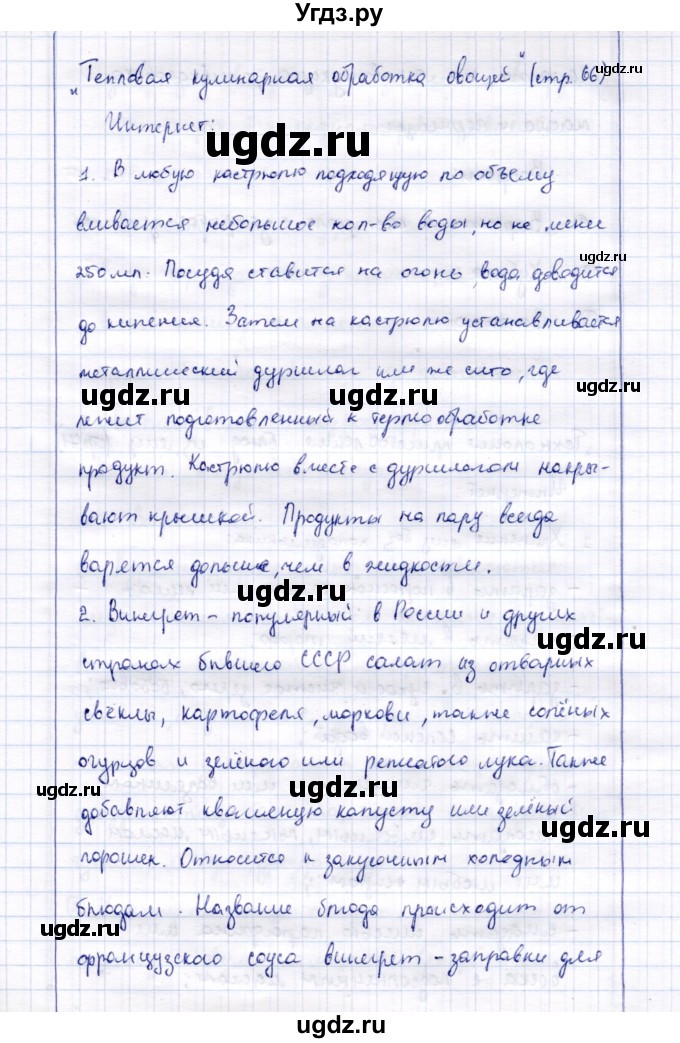 Угдз.ру
"Тепловая кулинарная обработка овощей" (стр. 66)
Интернет:
1. В любую кастрюлю подходящую по объему
вливается небольшое кол-во воды, но не менее
250 мл. Посуда ставится на огонь, вода доводится
до кипения. Затем на кастрюлю устанавливается
металлический дуршлаг или же сито, где
лежит подготовленный к термообработке
продукт. Кастрюлю вместе с дуршлагом накры-
вают крышкой. Продукты на пару всегда
варятся дольше, чем в жидкости.
2. Винегрет - популярный в России и других
странах бывшего СССР салат из отварных
свёклы, картофеля, моркови, также солёных
огурцов и зелёного или репчатого лука. Также
добавляют квашеную капусту или зелёный
горошек. Относится к закусочным холодным
блюдам. Название блюда происходит от
французского соуса винегрет - заправки для
ugdz.ru
ugdz.ru
ugdz.ru
ugdz.ru
ugdz.ru
ugdz.ru
ugdz.ru
ugdz.ru
ugdz.ru
ugdz.ru
ugdz.ru
ugdz.ru
ugdz.ru
ugdz.ru